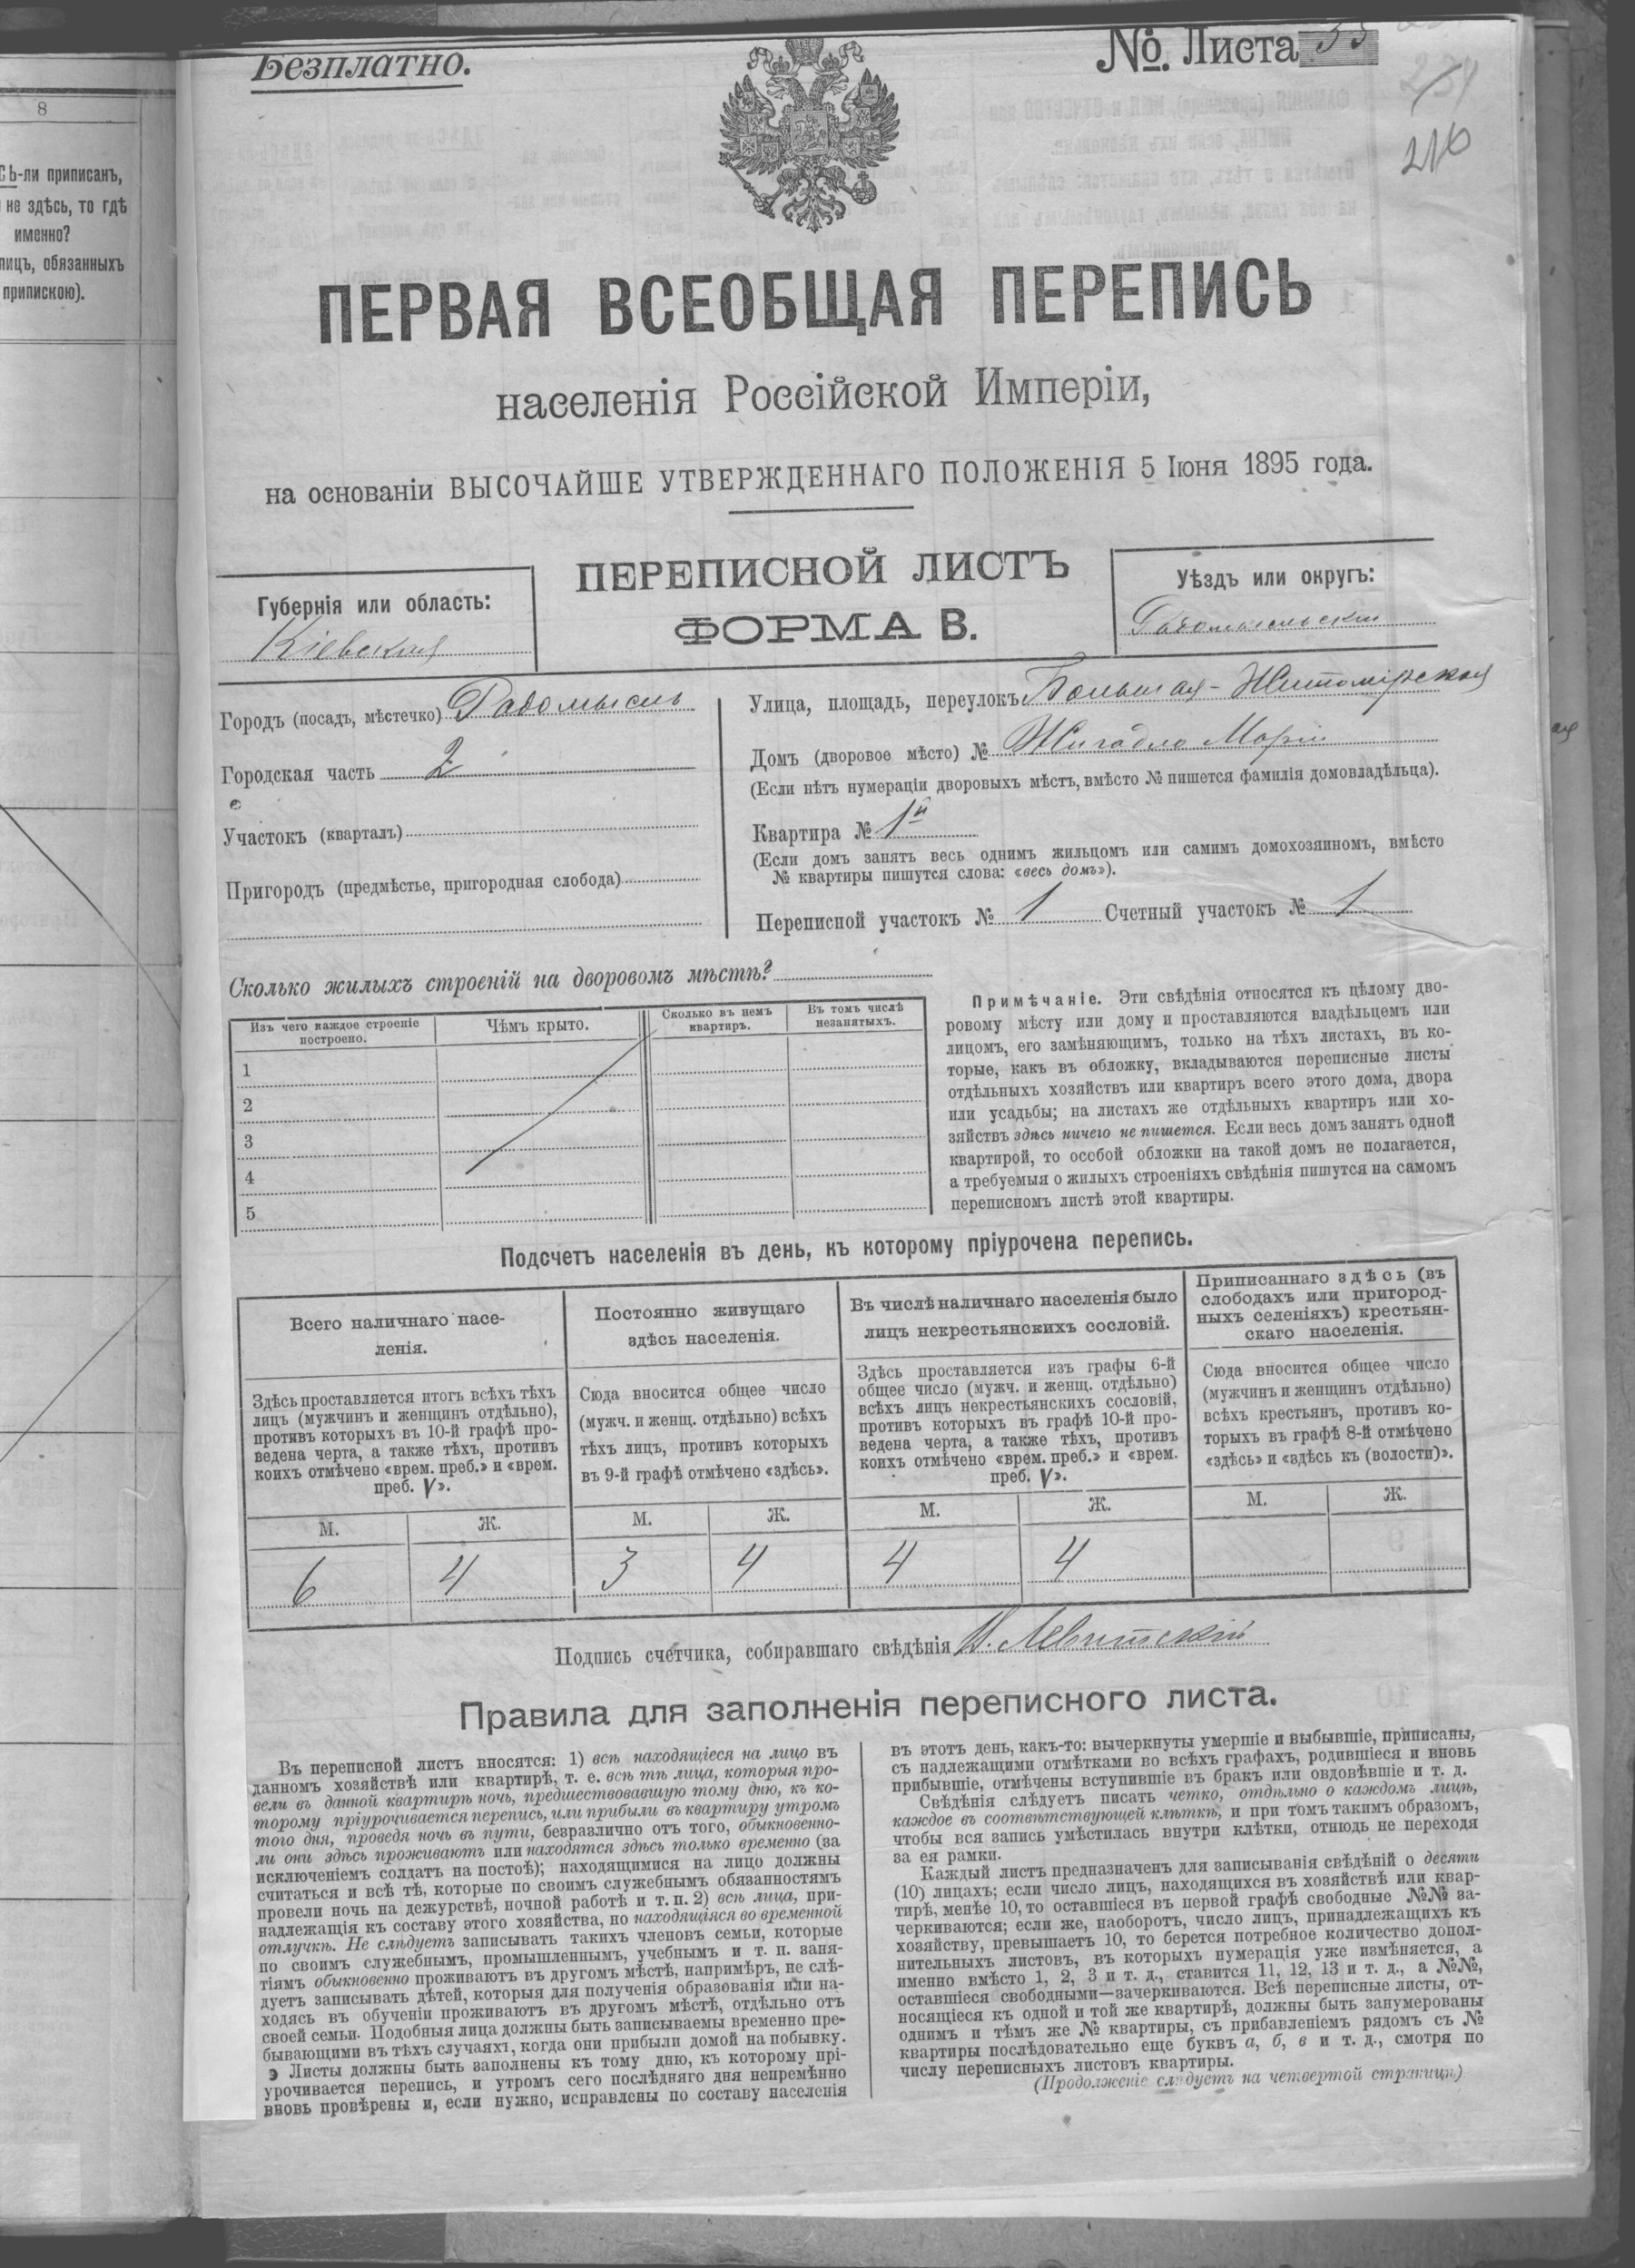 8
СЬ-ли приписанъ,
не здѣсь, то гдѣ
именно?
лицъ, обязанныхъ
припискою).
Безплатно.
№. Листа 55
216
ПЕРВАЯ ВСЕОБЩАЯ ПЕРЕПИСЬ
населенія Россійской Имперіи,
на основаніи ВЫСОЧАЙШЕ УТВЕРЖДЕННАГО ПОЛОЖЕНІЯ 5 Іюня 1895 года.
ПЕРЕПИСНОЙ ЛИСТЪ
ФОРМА В.
Губернія или область:
Кіевская
Уѣздъ или округъ:
Радомысльскій
Городъ (посадъ, мѣстечко) Радомысль
Городская часть 2
Участокъ (кварталъ)
Пригородъ (предмѣстье, пригородная слобода)
Улица, площадь, переулокъ Большая-Житомірская
Домъ (дворовое мѣсто) № Жигадло Маріи
(Если нѣтъ нумераціи дворовыхъ мѣстъ, вмѣсто № пишется фамилія домовладѣльца).
Квартира № 1й
(Если домъ занятъ весь однимъ жильцомъ или самимъ домохозяиномъ, вмѣсто
№ квартиры пишутся слова: «весь домъ»).
Переписной участокъ № 1 Счетный участокъ № 1
Сколько жилыхъ строеній на дворовомъ мѣстѣ?
Изъ чего каждое строеніе
построено.
Чѣмъ крыто.
Сколько въ немъ
квартиръ.
Въ томъ числѣ
незанятыхъ.
1
2
3
4
5
Примѣчаніе. Эти свѣдѣнія относятся къ цѣлому дво-
ровому мѣсту или дому и проставляются владѣльцемъ или
лицомъ, его замѣняющимъ, только на тѣхъ листахъ, въ ко-
торые, какъ въ обложку, вкладываются переписные листы
отдѣльныхъ хозяйствъ или квартиръ всего этого дома, двора
или усадьбы; на листахъ же отдѣльныхъ квартиръ или хо-
зяйствъ здѣсь ничего не пишется. Если весь домъ занятъ одной
квартирой, то особой обложки на такой домъ не полагается,
а требуемыя о жилыхъ строеніяхъ свѣдѣнія пишутся на самомъ
переписномъ листѣ этой квартиры.
Подсчетъ населенія въ день, къ которому пріурочена перепись.
Всего наличнаго насе-
ленія.
Здѣсь проставляется итогъ всѣхъ тѣхъ
лицъ (мужчинъ и женщинъ отдѣльно),
противъ которыхъ въ 10-й графѣ про-
ведена черта, а также тѣхъ, противъ
коихъ отмѣчено «врем. преб.» и «врем.
преб. V».
М. Ж.
6 4
Постоянно живущаго
здѣсь населенія.
Сюда вносится общее число
(мужч. и женщ. отдѣльно) всѣхъ
тѣхъ лицъ, противъ которыхъ
въ 9-й графѣ отмѣчено «здѣсь».
М. Ж.
3 4
Въ числѣ наличнаго населенія было
лицъ некрестьянскихъ сословій.
Здѣсь проставляется изъ графы 6-й
общее число (мужч. и женщ. отдѣльно)
всѣхъ лицъ некрестьянскихъ сословій,
противъ которыхъ въ графѣ 10-й про-
ведена черта, а также тѣхъ, противъ
коихъ отмѣчено «врем. преб.» и «врем.
преб. V».
М. Ж.
4 4
Приписаннаго здѣсь (въ
слободахъ или пригород-
ныхъ селеніяхъ) крестьян-
скаго населенія.
Сюда вносится общее число
(мужчинъ и женщинъ отдѣльно)
всѣхъ крестьянъ, противъ ко-
торыхъ въ графѣ 8-й отмѣчено
«здѣсь» и «здѣсь къ (волости)».
М. Ж.
Подпись счетчика, собиравшаго свѣдѣнія Н. Левитскій
Правила для заполненія переписного листа.
Въ переписной листъ вносятся: 1) всѣ находящіеся на лицо въ
данномъ хозяйствѣ или квартирѣ, т. е. всѣ тѣ лица, которыя про-
вели въ данной квартирѣ ночь, предшествовавшую тому дню, къ ко-
торому пріурочивается перепись, или прибыли въ квартиру утромъ
того дня, проведя ночь въ пути, безразлично отъ того, обыкновенно-
ли они здѣсь проживаютъ или находятся здѣсь только временно (за
исключеніемъ солдатъ на постоѣ); находящимися на лицо должны
считаться и всѣ тѣ, которые по своимъ служебнымъ обязанностямъ
провели ночь на дежурствѣ, ночной работѣ и т. п. 2) всѣ лица, при-
надлежащія къ составу этого хозяйства, но находящіяся во временной
отлучкѣ. Не слѣдуетъ записывать такихъ членовъ семьи, которые
по своимъ служебнымъ, промышленнымъ, учебнымъ и т. п. заня-
тіямъ обыкновенно проживаютъ въ другомъ мѣстѣ, напримѣръ, не слѣ-
дуетъ записывать дѣтей, которыя для полученія образованія или на-
ходясь въ обученіи проживаютъ въ другомъ мѣстѣ, отдѣльно отъ
своей семьи. Подобныя лица должны быть записываемы временно пре-
бывающими въ тѣхъ случаяхъ, когда они прибыли домой на побывку.
Листы должны быть заполнены къ тому дню, къ которому прі-
урочивается перепись, и утромъ сего послѣдняго дня непремѣнно
вновь провѣрены и, если нужно, исправлены по составу населенія
въ этотъ день, какъ-то: вычеркнуты умершіе и выбывшіе, приписаны,
съ надлежащими отмѣтками во всѣхъ графахъ, родившіеся и вновь
прибывшіе, отмѣчены вступившіе въ бракъ или овдовѣвшіе и т. д.
Свѣдѣнія слѣдуетъ писать четко, отдѣльно о каждомъ лицѣ,
каждое въ соотвѣтствующей клѣткѣ, и при томъ такимъ образомъ,
чтобы вся запись умѣстилась внутри клѣтки, отнюдь не переходя
за ея рамки.
Каждый листъ предназначенъ для записыванія свѣдѣній о десяти
(10) лицахъ; если число лицъ, находящихся въ хозяйствѣ или квар-
тирѣ, менѣе 10, то оставшіеся въ первой графѣ свободные №№ за-
черкиваются; если же, наоборотъ, число лицъ, принадлежащихъ къ
хозяйству, превышаетъ 10, то берется потребное количество допол-
нительныхъ листовъ, въ которыхъ нумерація уже измѣняется, а
именно вмѣсто 1, 2, 3 и т. д., ставится 11, 12, 13 и т. д., а №№,
оставшіеся свободными—зачеркиваются. Всѣ переписные листы, от-
носящіеся къ одной и той же квартирѣ, должны быть занумерованы
однимъ и тѣмъ же № квартиры, съ прибавленіемъ рядомъ съ №
квартиры послѣдовательно еще буквъ а, б, в и т. д., смотря по
числу переписныхъ листовъ квартиры.
(Продолженіе слѣдуетъ на четвертой страницѣ)